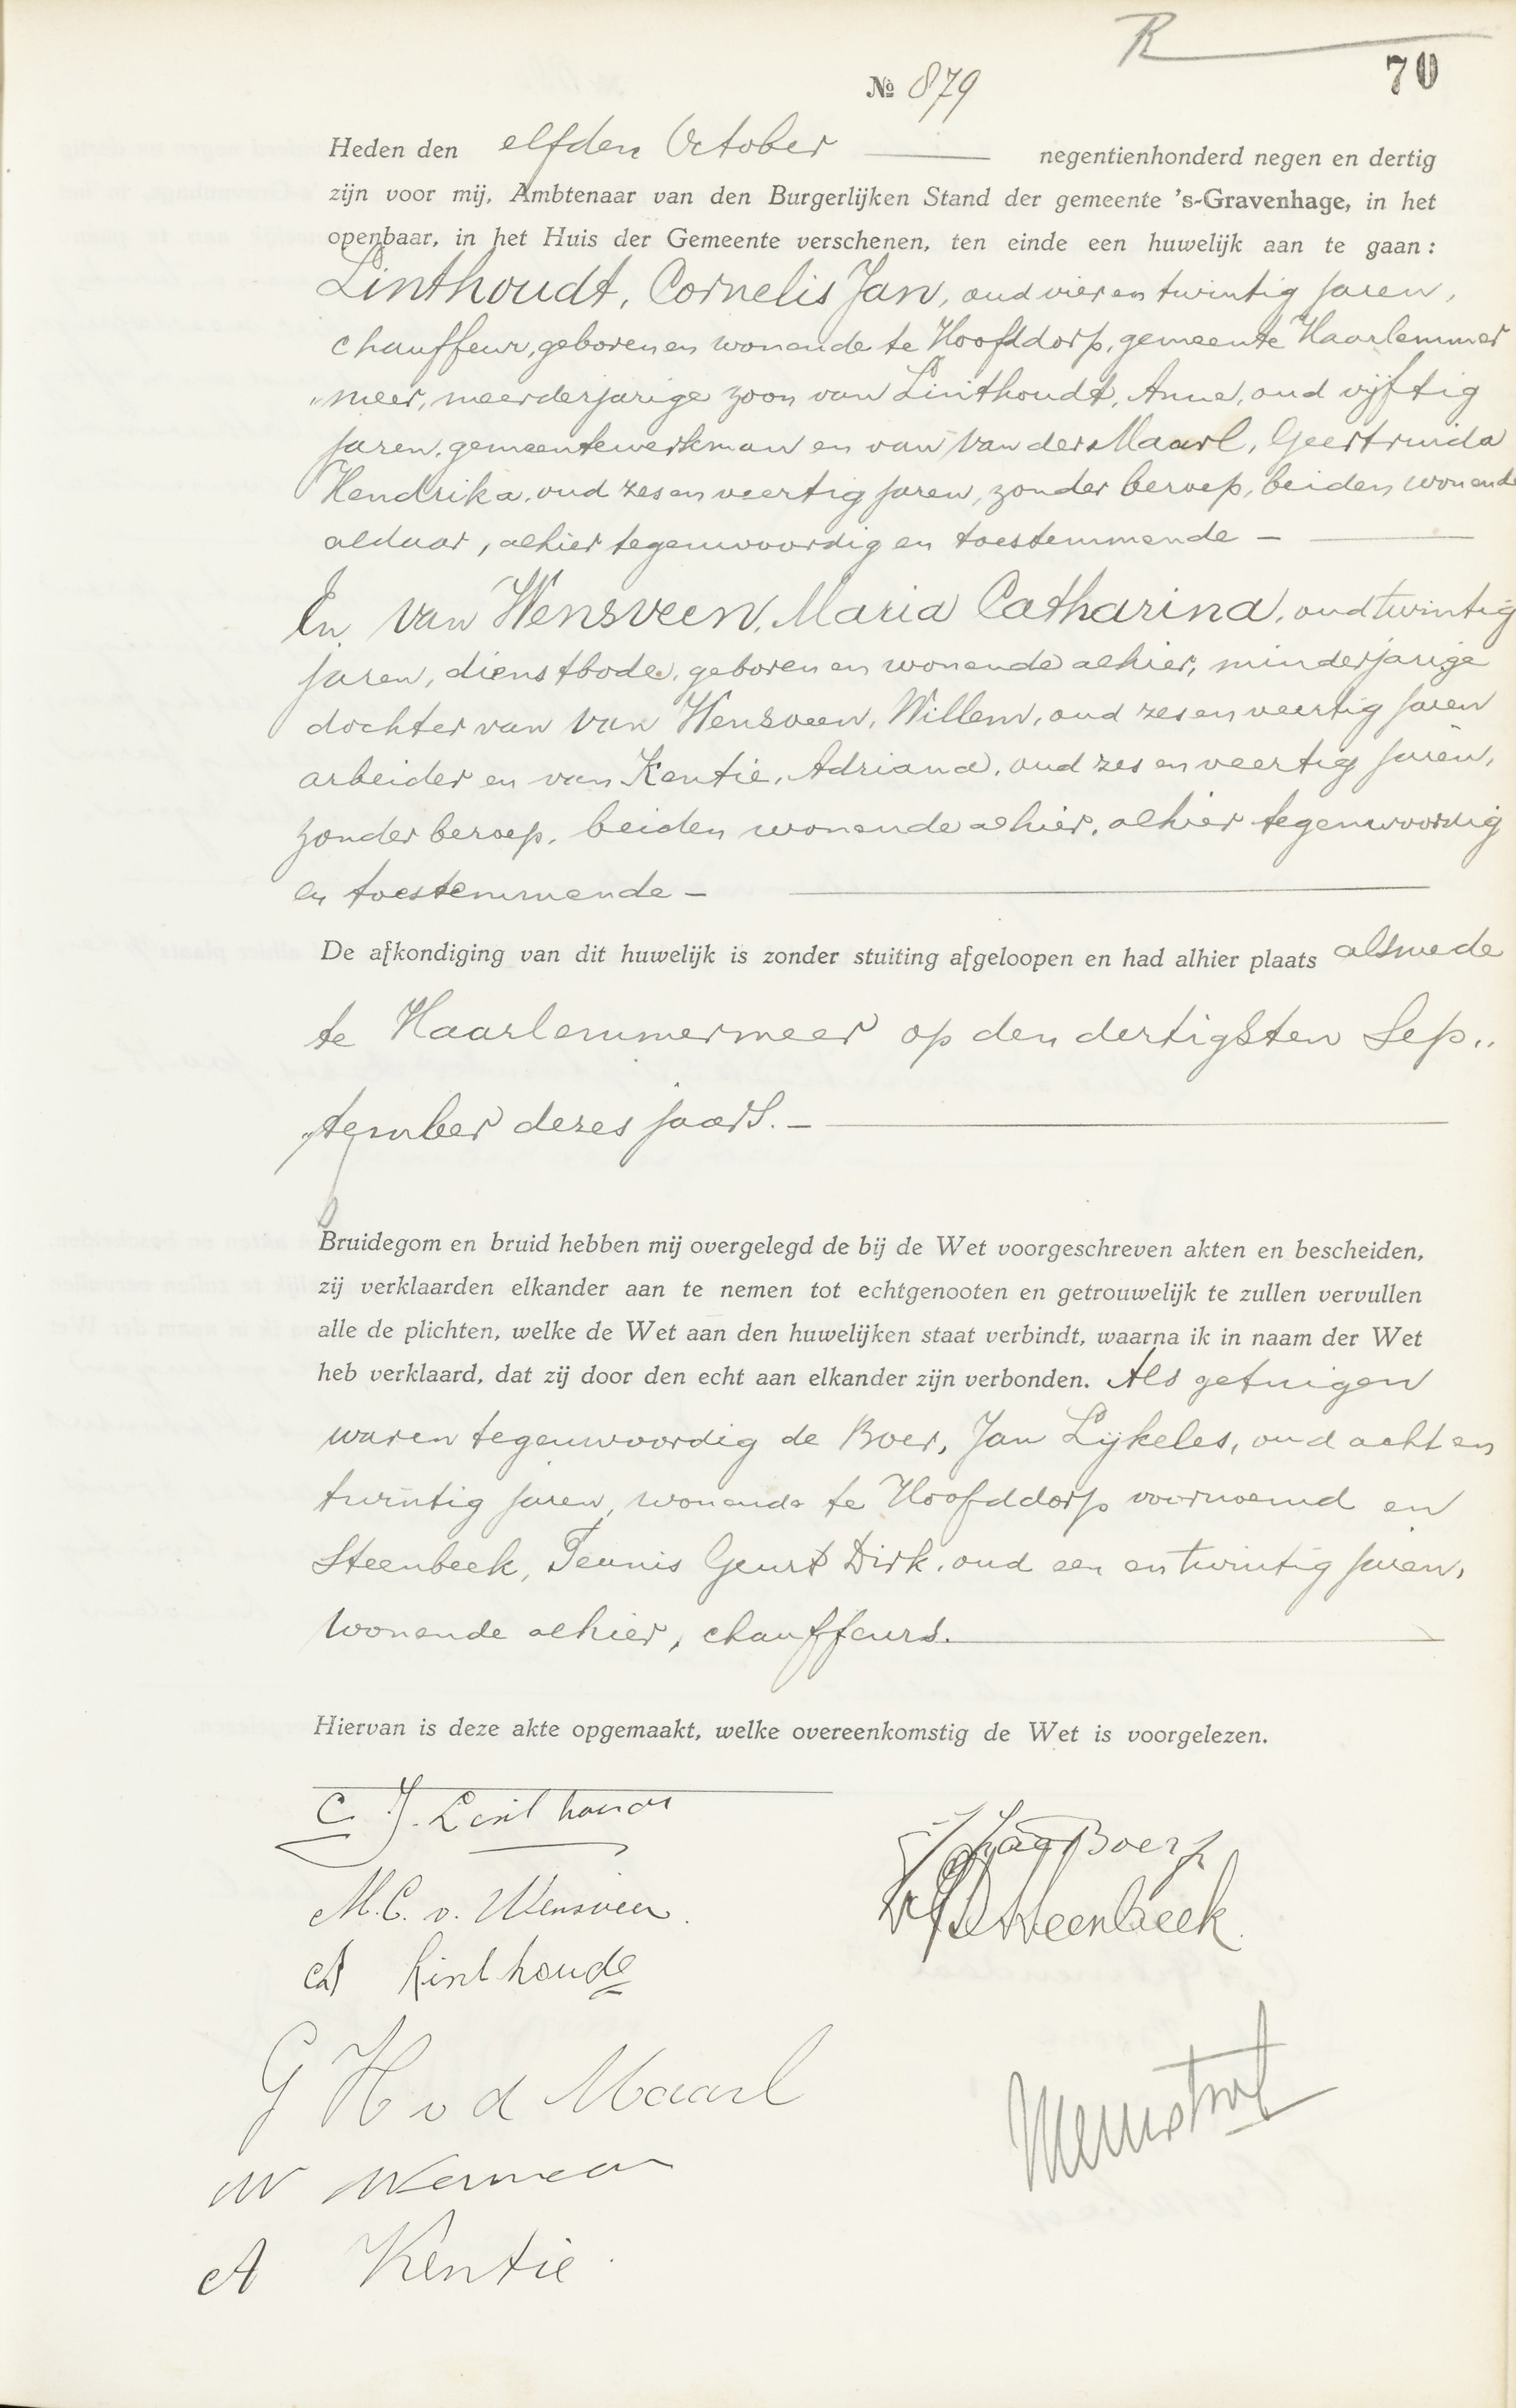 R
70
№ 879
Heden den elfden October negentienhonderd negen en dertig
zijn voor mij, Ambtenaar van den Burgerlijken Stand der gemeente 's-Gravenhage, in het
openbaar, in het Huis der Gemeente verschenen, ten einde een huwelijk aan te gaan:
Linthoudt, Cornelis Jan, oud vier en twintig jaren,
chauffeur, geboren en wonende te Hoofddorp, gemeente Haarlemmer
„meer, meerderjarige zoon van Linthoudt, Anne, oud vijftig
jaren, gemeentewerkman en van van der Maarl, Geertruida
Hendrika, oud zes en veertig jaren, zonder beroep, beiden wonende
aldaar, alhier tegenwoordig en toestemmende —
En van Wensveen, Maria Catharina, oud twintig
jaren, dienstbode, geboren en wonende alhier, minderjarige
dochter van van Wensveen, Willem, oud zes en veertig jaren
arbeider en van Kentie, Adriana, oud zes en veertig jaren,
zonder beroep, beiden wonende alhier, alhier tegenwoordig
en toestemmende —
De afkondiging van dit huwelijk is zonder stuiting afgeloopen en had alhier plaats alsmede
te Haarlemmermeer op den dertigsten Sep„
„tember dezes jaars. —
Bruidegom en bruid hebben mij overgelegd de bij de Wet voorgeschreven akten en bescheiden,
zij verklaarden elkander aan te nemen tot echtgenooten en getrouwelijk te zullen vervullen
alle de plichten, welke de Wet aan den huwelijken staat verbindt, waarna ik in naam der Wet
heb verklaard, dat zij door den echt aan elkander zijn verbonden. Als getuigen
waren tegenwoordig de Boer, Jan Lijkeles, oud acht en
twintig jaren, wonende te Hoofddorp voornoemd en
Steenbeek, Teunis Geurt Dirk, oud een en twintig jaren,
wonende alhier, chauffeurs.
Hiervan is deze akte opgemaakt, welke overeenkomstig de Wet is voorgelezen.
C. J. Linthoudt
Boer
M. C. v. Wensveen.
Steenbeek.
A Linthoudt
G H v d Maarl
W Wensveen
A Kentie.